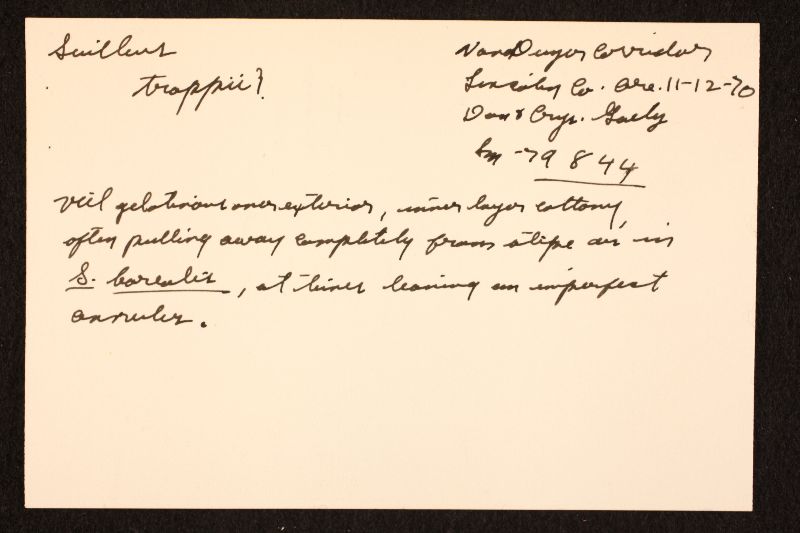 Suillus
trappii?
VanDuzer Corridor
Lincoln Co. Ore. 11-12-70
Don & Chrys.
Sm -79844
Veil gelatinous over exterior, inner layer cottony,
often pulling away completely from stipe as in
S. borealis, at times leaving an imperfect
annulus.